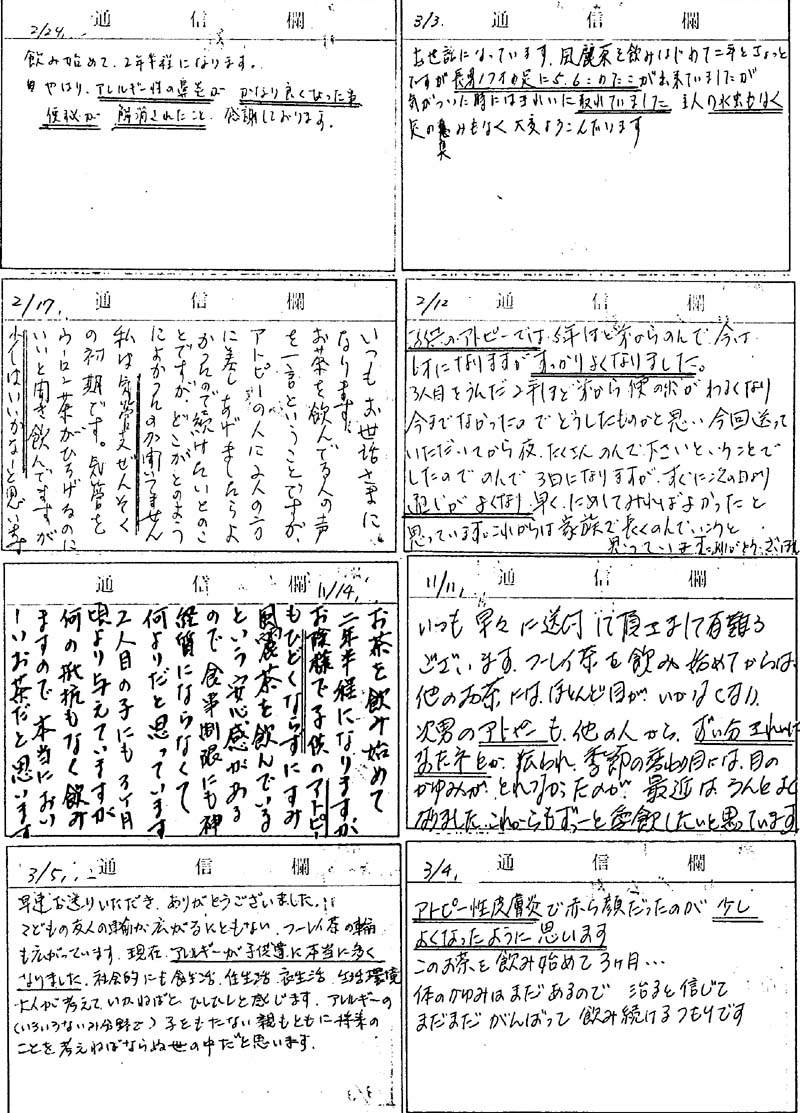 2/24. 通信欄
飲み始めて、2年半程になります。
やはり、アレルギー性の鼻炎が かなり良くなった事
便秘が 解消されたこと、感謝しております。
3/3. 通信欄
お世話になっています、風麗茶を飲みはじめて二年とちょっと
ですが 長身 の足に5、6このたこが出来ていましたが
気がついた時にはきれいに取れていました 主人の水虫もなく
足の臭みもなく大変よろこんでいます
2/17. 通信欄
いつもお世話さまに
なります。
お茶を飲んでる人の声
を一言ということですが、
アトピーの人に2人の方
に差しあげましたらよ
かったので続けたいとのこ
とですが、どこがどのよう
によかったのか聞いてません
私は気管支ぜんそく
の初期です。気管を
ウーロン茶がひろげるのに
いいと聞き飲んでますが
少しはいいかなーと思います
2/12 通信欄
子供のアトピーでは、5年ほど前からのんで、今は
1才になりますがすっかりよくなりました。
3人目をうんだ2年ほど前から便の出がわるくなり
今までなかったのでどうしたものかと思い今回送って
いただいてから夜、たくさんのんで下さいということで
したのでのんで3日になりますが、すぐに次の日より
通じがよくなり、早く、ためしてみればよかったと
思っています。これからは家族で長くのんでいこうと
思っています。
通信欄 11/14.
お茶を飲み始めて
二年半程になりますが
お陰様で子供のアトピー
もひどくならずにすみ
風麗茶を飲んでいる
という安心感がある
ので食事制限にも神
経質にならなくて
何よりだと思っています
2人目の子にも3ヶ月
頃より与えていますが
何の抵抗もなく飲み
ますので本当においし
ーいお茶だと思います
11/11. 通信欄
いつも早々に送付して頂きまして有難う
ございます。フーレイ茶を飲み始めてからは、
他のお茶には、ほとんど目がいかなくなり
次男のアトピーも、他の人から、ずい分きれいに
なったネとか、云われ、季節の変わり目には、目の
かゆみが、とれなかったのが、最近は、うんとよく
なりました。これからもずっーと愛飲したいと思っています
3/5. 通信欄
早速お送りいただき、ありがとうございました。!!
こどもの友人の輪が広がるにともない、フーレイ茶の輪
も広がっています。現在、アレルギーが子供達に本当に多く
なりました。社会的にも食生活、住生活、衣生活、生活環境
大人が考えていかねばと、ひしひしと感じます。アレルギーの
(いろいろない分野で)子をもたない親もともに将来の
ことを考えねばならぬ世の中だと思います。
3/4. 通信欄
アトピー性皮膚炎で赤ら顔だったのが少し
よくなったように思います
このお茶を飲み始めて3ヶ月…
体のかゆみはまだあるので 治ると信じて
まだまだがんばって飲み続けるつもりです